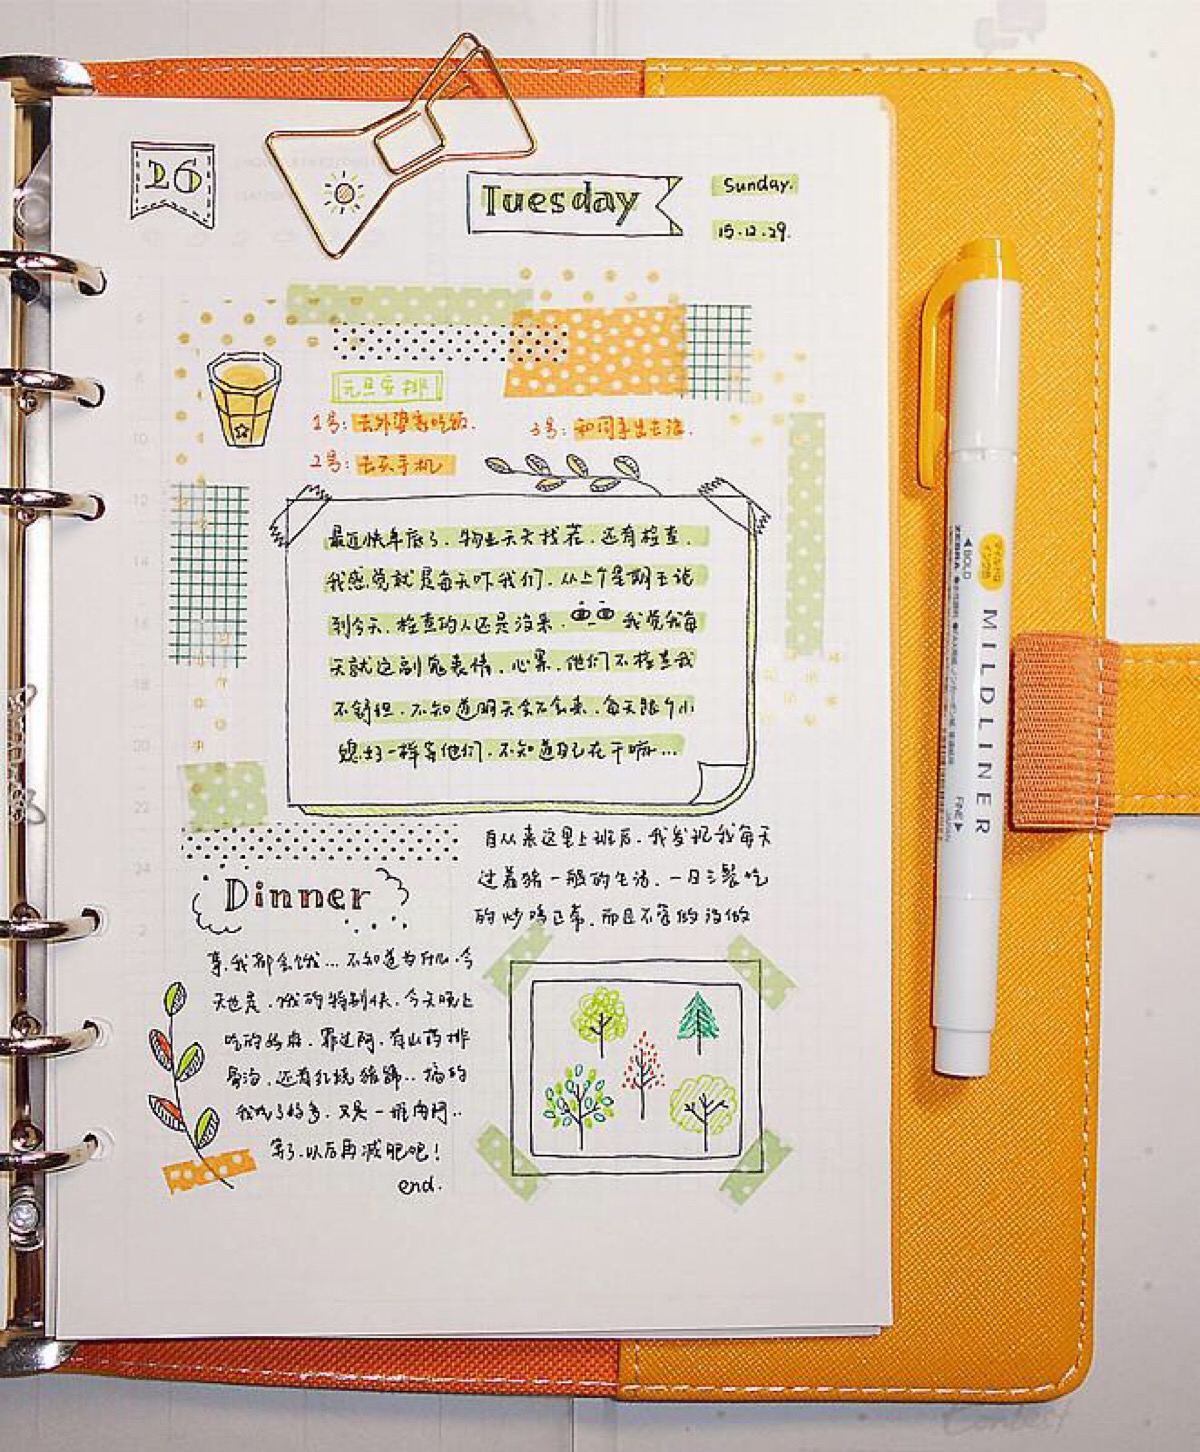 26
Tuesday
Sunday.
15.12.29.
元旦安排
1号: 去外婆家吃饭.
3号: 和同事出去浪.
2号: 去买手机
最近快年底了. 物业天天找茬. 还有检查.
我感觉就是每天吓我们. 从上个星期五说
到今天. 检查的人还是没来. 我觉我每
天就这副鬼表情. 心累. 他们不检查我
不舒坦. 不知道明天会不会来. 每天跟个小
媳妇一样等他们. 不知道自己在干嘛...
自从来这里上班后. 我发现我每天
过着猪一般的生活. 一日三餐吃
的 正常. 而且不管做没做
Dinner
事. 我都会饿... 不知道为什么. 今
天也是. 饿的特别快. 今天晚上
吃的 罪过阿. 有山药排
骨汤. 还有红烧猪蹄.. 搞的
我吃了好多. 又是一堆肉阿..
算了. 以后再减肥吧!
end.
6
8
10
12
14
16
18
20
22
24
2
ZEBRA
BOLD
MILDLINER
FINE